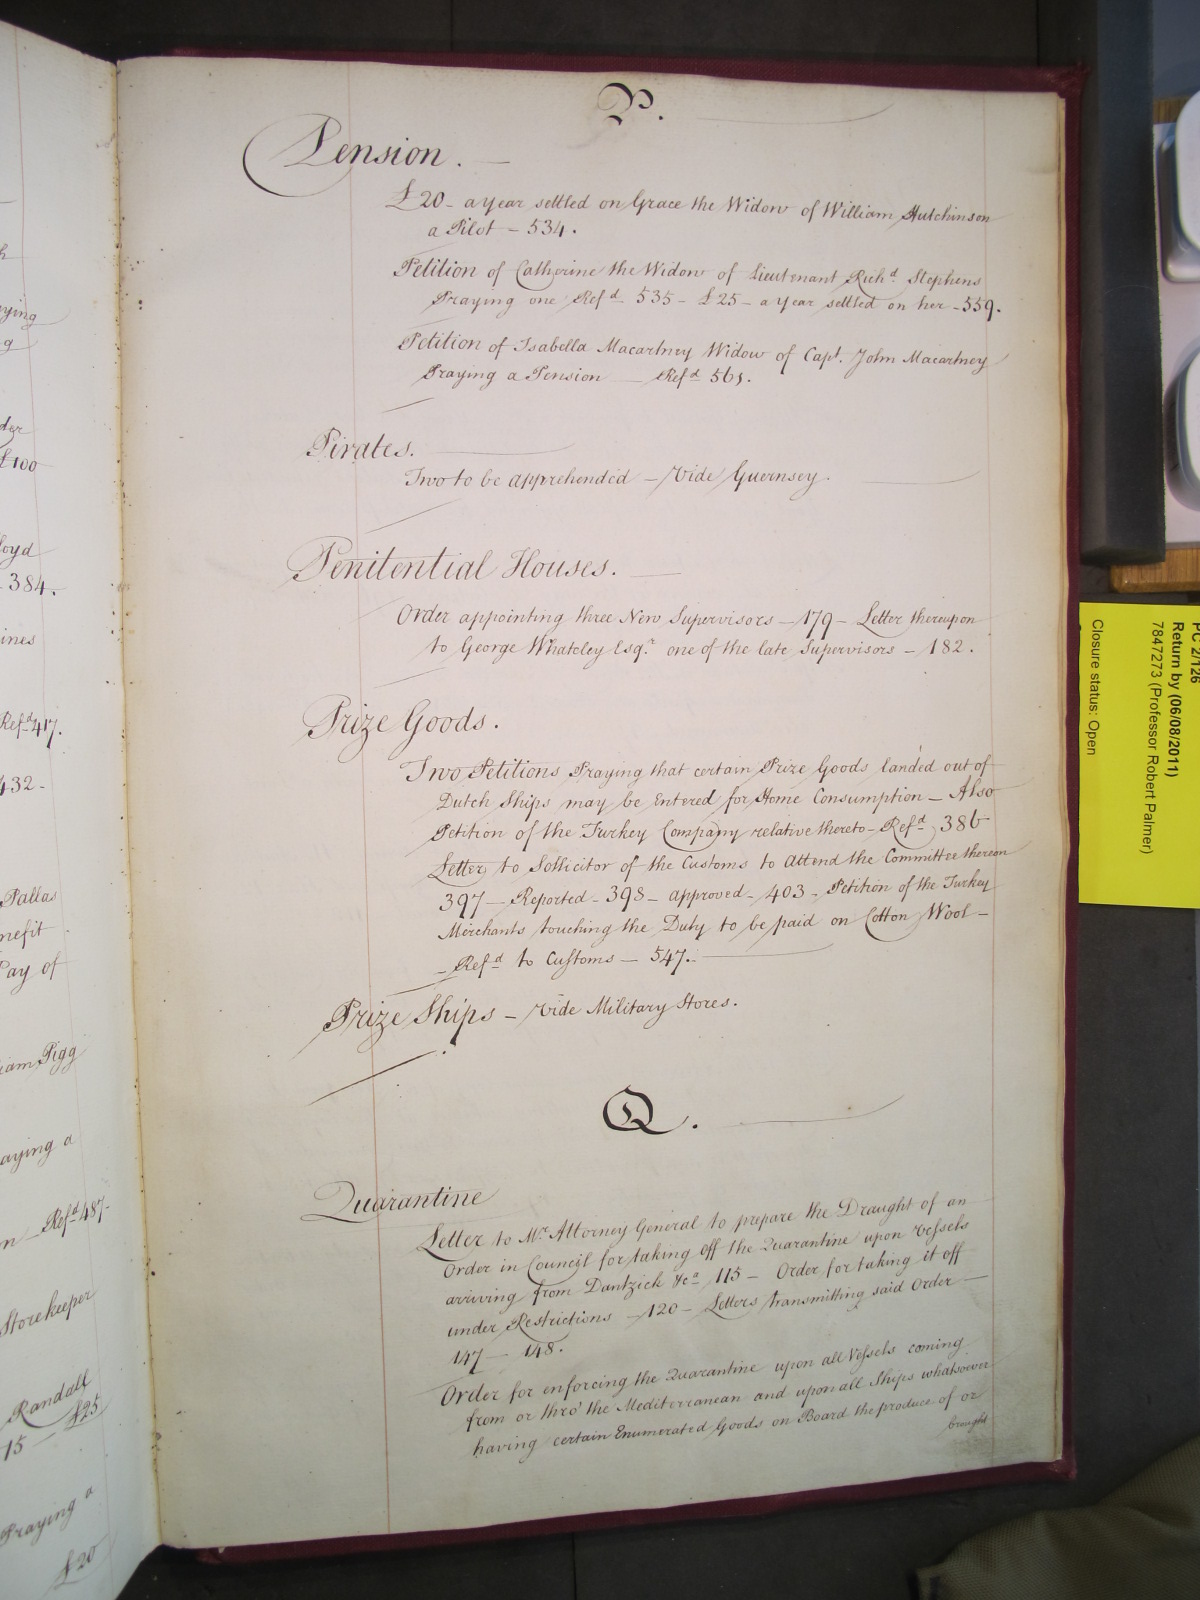 h
ying
g
der
£100
loyd
- 384.
ines
Refd. 417.
432-
Pallas
nefit
Pay of
iam Pigg
aying a
n Refd. 487-
Storekeeper
Randall
15 - £25
Praying a
£20
P.
Pension.
£20 - a year settled on Grace the Widow of William Hutchinson
a Pilot - 534.
Petition of Catherine the Widow of Lieutenant Richd. Stephens
Praying one Refd. 535 - £25 - a year settled on her - 559.
Petition of Isabella Macartney Widow of Capt. John Macartney
Praying a Pension - Refd. 561.
Pirates.
Two to be apprehended - Vide Guernsey.
Penitential Houses.
Order appointing three New Supervisors - 179 - Letter thereupon
to George Whatcley Esqr. one of the late Supervisors - 182.
Prize Goods.
Two Petitions Praying that certain Prize Goods landed out of
Dutch Ships may be Entered for Home Consumption - Also
Petition of the Turkey Company relative thereto - Refd. 386
Letter to Sollicitor of the Customs to Attend the Committee thereon
397 - Reported - 398 - approved - 403 - Petition of the Turkey
Merchants touching the Duty to be paid on Cotton Wool -
- Refd. to Customs - 547.
Prize Ships - Vide Military Stores.
Q.
Quarantine
Letter to Mr. Attorney General to prepare the Draught of an
Order in Council for taking off the Quarantine upon Vessels
arriving from Dantzick &ca. 115 - Order for taking it off
under Restrictions - 120 - Letters transmitting said Order -
147 - 148.
Order for enforcing the Quarantine upon all Vessels coming
from or thro' the Mediterranean and upon all Ships whatsoever
having certain Enumerated Goods on Board the produce of or
brought
PC 2/126
Return by (06/08/2011)
7847273 (Professor Robert Palmer)
Closure status: Open